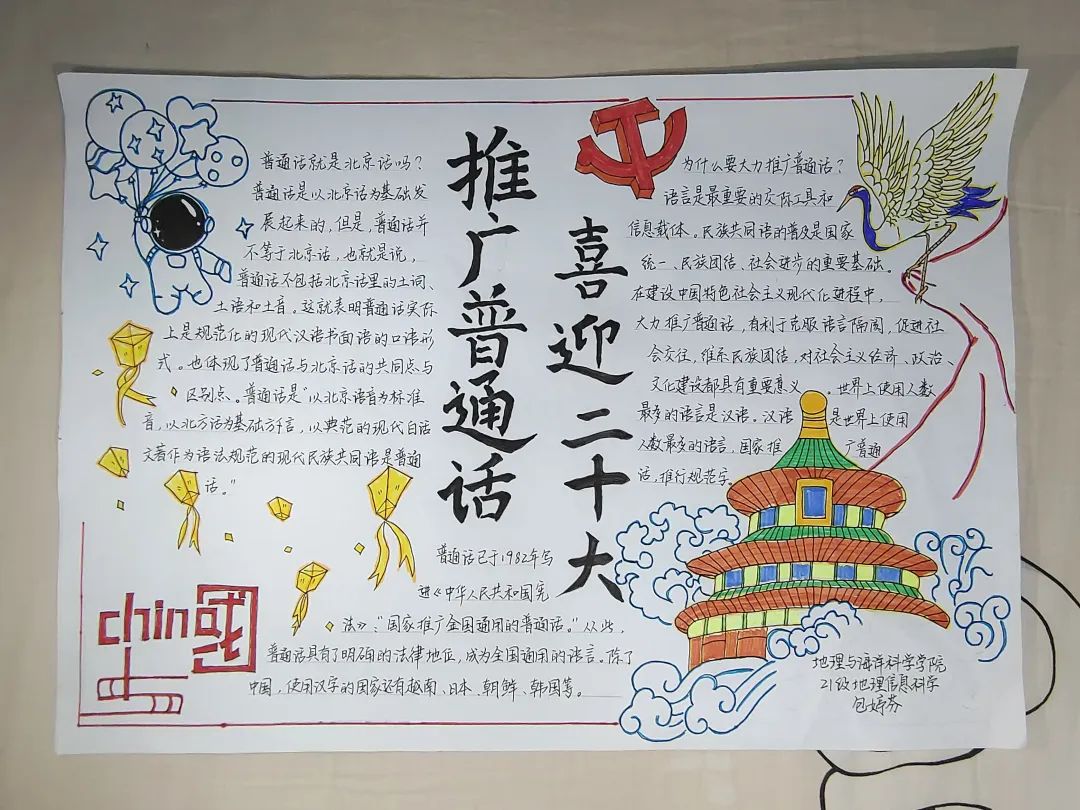 推广普通话
喜迎二十大
普通话就是北京话吗?
普通话是以北京话为基础发
展起来的,但是,普通话并
不等于北京话,也就是说,
普通话不包括北京话里的土词、
土语和土音。这就表明普通话实际
上是规范化的现代汉语书面语的口语形
式。也体现了普通话与北京话的共同点与
区别点。普通话是“以北京语音为标准
音,以北方话为基础方言,以典范的现代白话
文著作为语法规范的现代民族共同语是普通
话。”
为什么要大力推广普通话?
语言是最重要的交际工具和
信息载体。民族共同语的普及是国家
统一、民族团结、社会进步的重要基础。
在建设中国特色社会主义现代化进程中,
大力推广普通话,有利于克服语言隔阂,促进社
会交往,维系民族团结,对社会主义经济、政治、
文化建设都具有重要意义。世界上使用人数
最多的语言是汉语。汉语是世界上使用
人数最多的语言,国家推广普通
话,推行规范字。
普通话已于1982年写
进《中华人民共和国宪
法》:“国家推广全国通用的普通话。”从此,
普通话具有了明确的法律地位,成为全国通用的语言。除了
中国,使用汉字的国家还有越南、日本、朝鲜、韩国等。
china
中国
地理与海洋科学学院
21级地理信息科学
包婷芬